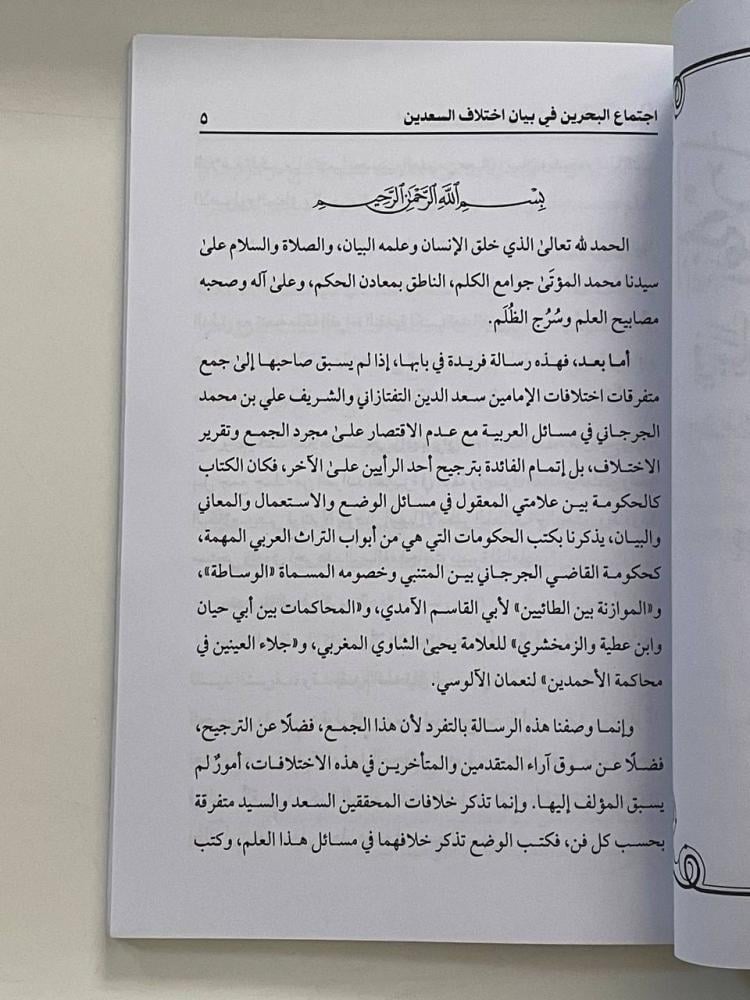 اجتماع البحرين في بيان اختلاف السعدين ٥
بِسْمِ اللَّهِ الرَّحْمَٰنِ الرَّحِيمِ
الحمد لله تعالىٰ الذي خلق الإنسان وعلمه البيان، والصلاة والسلام علىٰ
سيدنا محمد المؤتَىٰ جوامع الكلم، الناطق بمعادن الحكم، وعلىٰ آله وصحبه
مصابيح العلم وسُرُج الظُلَم.
أما بعد، فهذه رسالة فريدة في بابها، إذا لم يسبق صاحبها إلىٰ جمع
متفرقات اختلافات الإمامين سعد الدين التفتازاني والشريف علي بن محمد
الجرجاني في مسائل العربية مع عدم الاقتصار علىٰ مجرد الجمع وتقرير
الاختلاف، بل إتمام الفائدة بترجيح أحد الرأيين علىٰ الآخر، فكان الكتاب
كالحكومة بين علامتي المعقول في مسائل الوضع والاستعمال والمعاني
والبيان، يذكرنا بكتب الحكومات التي هي من أبواب التراث العربي المهمة،
كحكومة القاضي الجرجاني بين المتنبي وخصومه المسماة «الوساطة»،
و«الموازنة بين الطائيين» لأبي القاسم الآمدي، و«المحاكمات بين أبي حيان
وابن عطية والزمخشري» للعلامة يحيىٰ الشاوي المغربي، و«جلاء العينين في
محاكمة الأحمدين» لنعمان الآلوسي.
وإنما وصفنا هذه الرسالة بالتفرد لأن هذا الجمع، فضلًا عن الترجيح،
فضلًا عن سوق آراء المتقدمين والمتأخرين في هذه الاختلافات، أمورٌ لم
يسبق المؤلف إليها. وإنما تذكر خلافات المحققين السعد والسيد متفرقة
بحسب كل فن، فكتب الوضع تذكر خلافهما في مسائل هذا العلم، وكتب